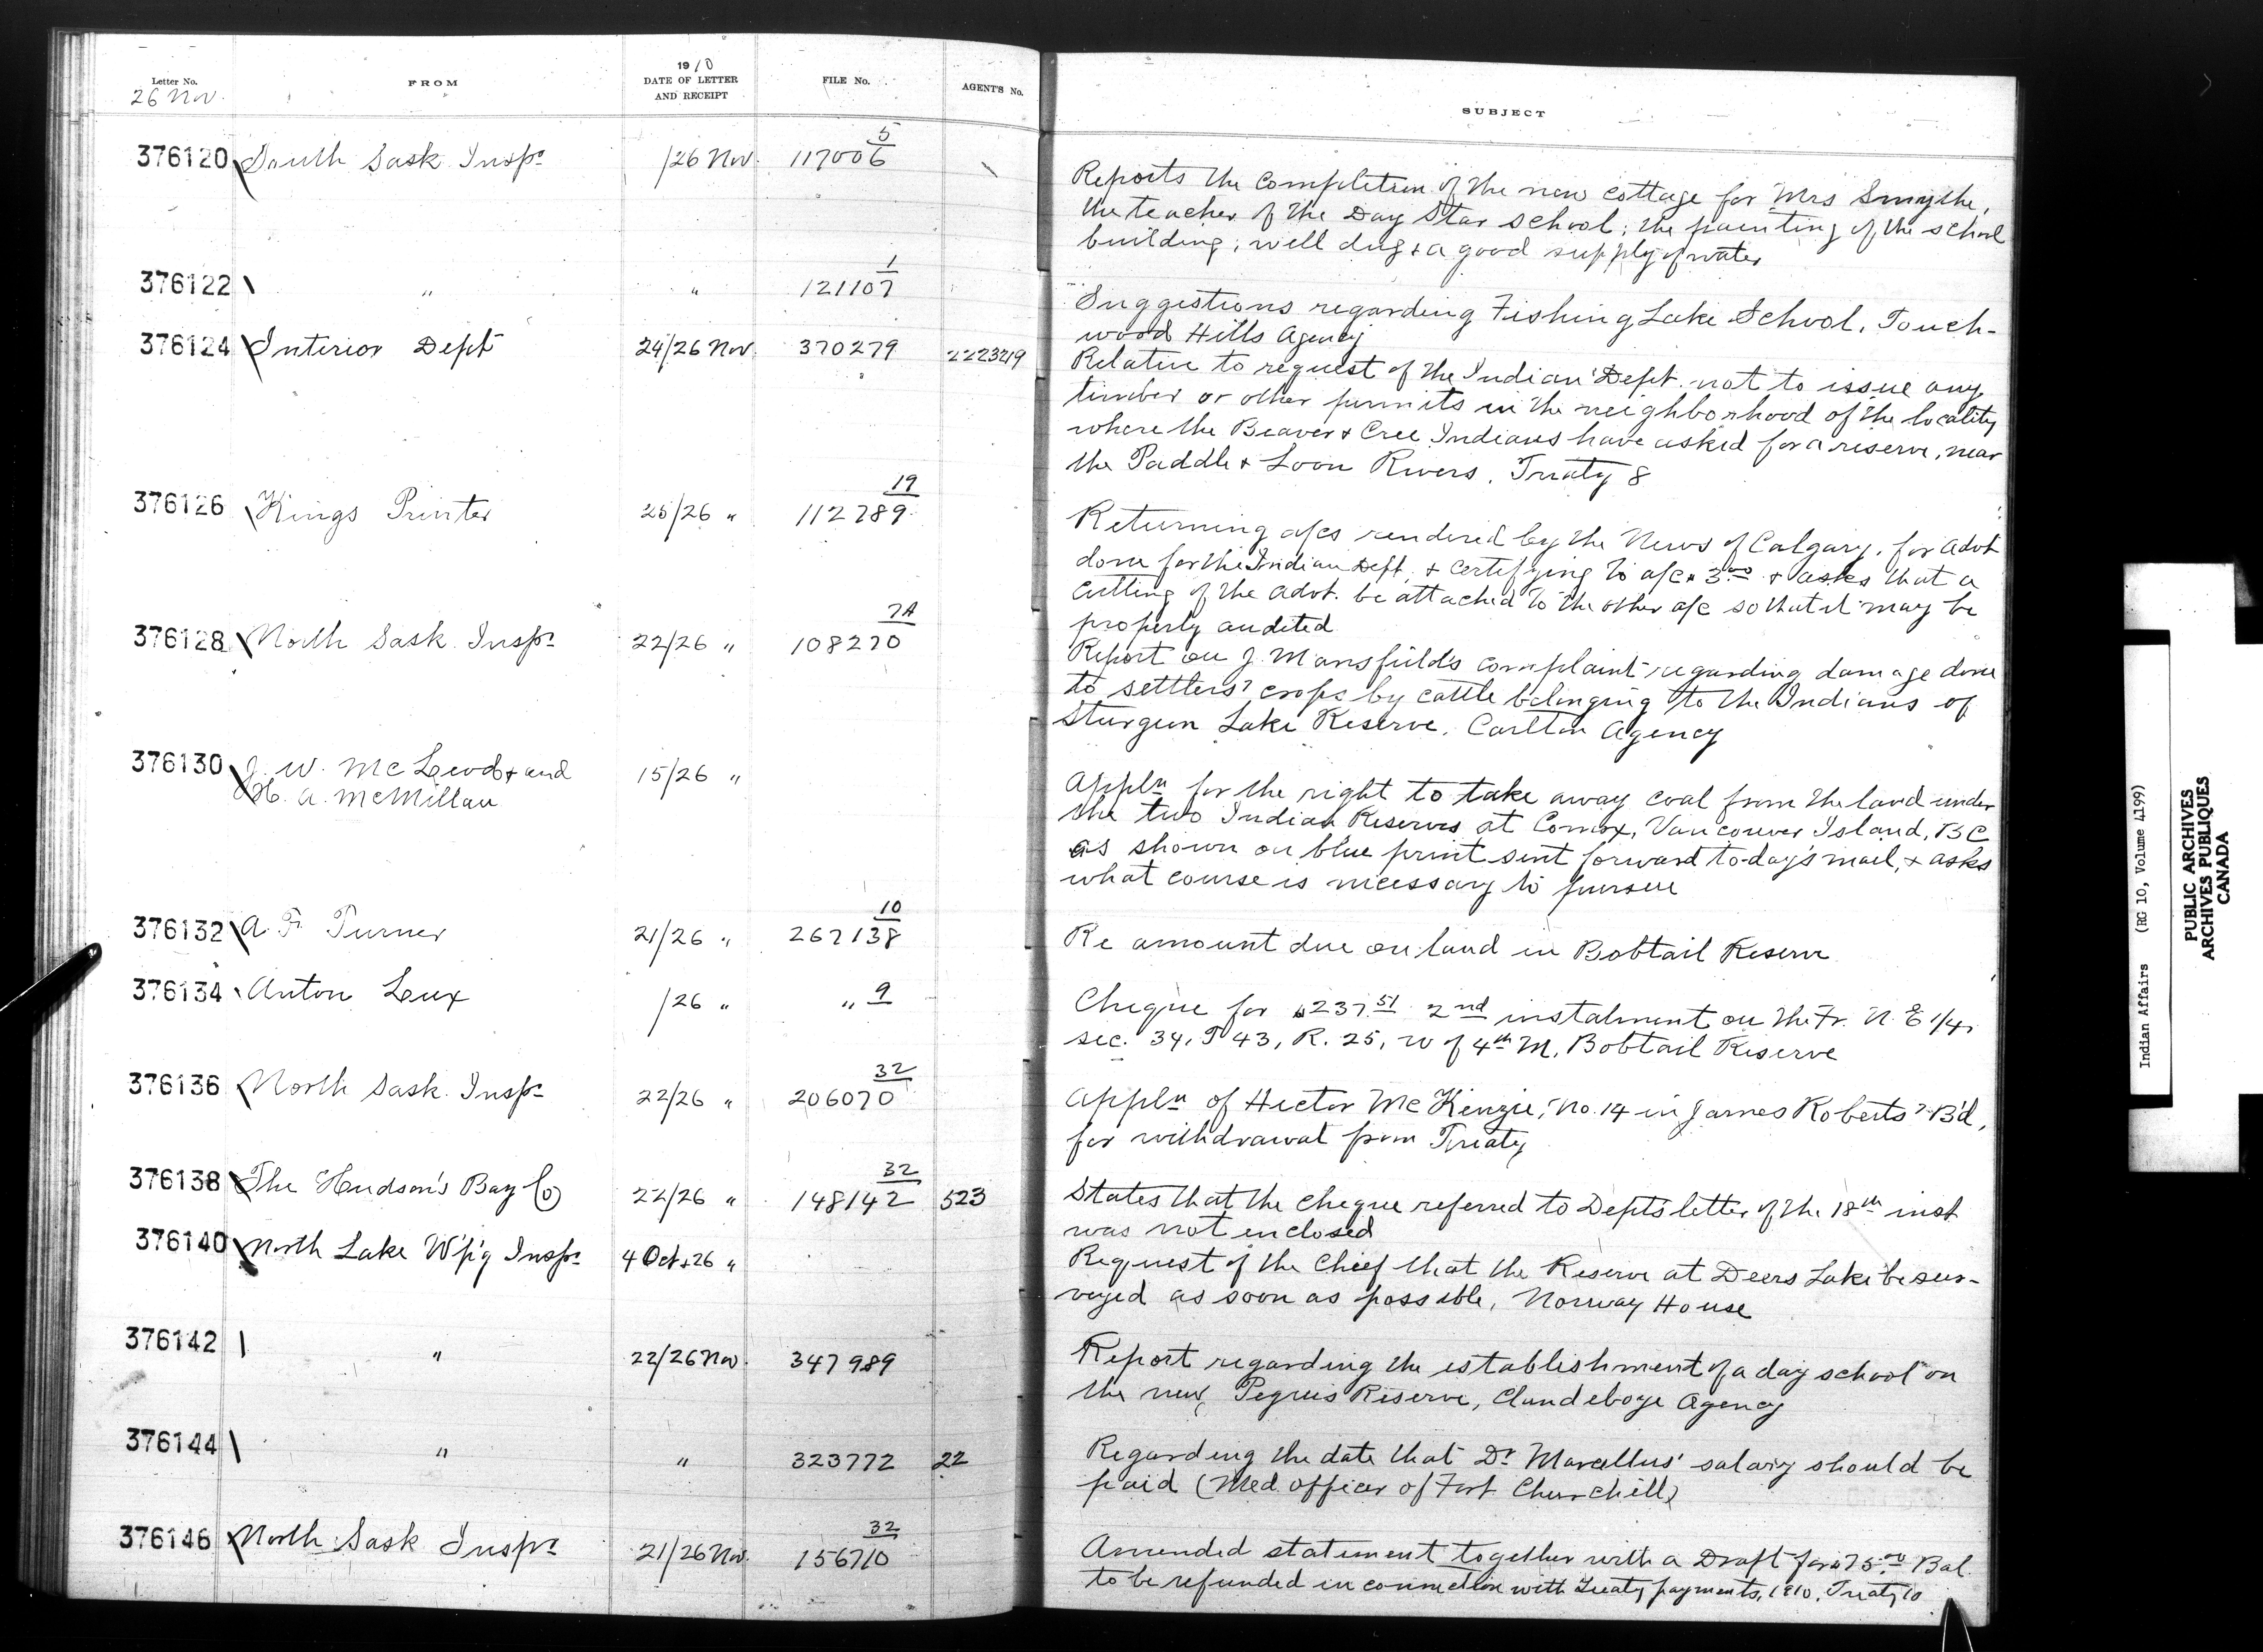 Letter No.
26 Nov.
FROM
1910
DATE OF LETTER
AND RECEIPT
FILE No.
AGENT'S No.
SUBJECT
376120 South Sask Inspr /26 Nov. 117006 5
Reports the completion of the new cottage for Mrs Smythe,
the teacher of the Day Star school; the painting of the school
building; well dug & a good supply of water
376122 " " 121107 1
Suggestions regarding Fishing Lake School, Touch-
wood Hills Agency
376124 Interior Dept 24/26 Nov. 370279 2223219
Relative to request of the Indian Dept. not to issue any
timber or other permits in the neighborhood of the locality
where the Beaver & Cree Indians have asked for a reserve, near
the Paddle & Loon Rivers, Treaty 8
376126 Kings Printer 25/26 " 112789 19
Returning a/cs rendered by the News of Calgary, for advt
done for the Indian Dept. & certifying to a/c $3.00 & asks that a
cutting of the advt. be attached to the other a/c so that it may be
properly audited
376128 North Sask. Inspr 22/26 " 108270 7A
Report on J. Mansfield's complaint regarding damage done
to settlers' crops by cattle belonging to the Indians of
Sturgeon Lake Reserve, Carlton Agency
376130 J. W. McLeod & and 15/26 "
H. A. McMillan
Appln for the right to take away coal from the land under
the two Indian Reserves at Comox, Vancouver Island, BC
as shown on blue print sent forward to-day's mail, & asks
what course is necessary to pursue
376132 A. F. Turner 21/26 " 267138 10
Re amount due on land in Bobtail Reserve
376134 Anton Leux /26 " " 9
Cheque for $237.51 2nd instalment on the Fr. N. E 1/4,
sec. 34, T 43, R. 25, W of 4th M, Bobtail Reserve
376136 North Sask. Inspr 22/26 " 206070 32
Appln of Hector McKenzie, No. 14 in James Roberts' B'd,
for withdrawal from Treaty
376138 The Hudson's Bay Co 22/26 " 148142 32 523
States that the cheque referred to Dept's letter of the 18th inst
was not enclosed
376140 North Lake W'p'g Inspr 4 Oct & 26 "
Request of the Chief that the Reserve at Deers Lake be sur-
veyed as soon as possible, Norway House
376142 " 22/26 Nov. 347989
Report regarding the establishment of a day school on
the new Peguis Reserve, Clandeboye Agency
376144 " " 323772 22
Regarding the date that Dr Marcellus' salary should be
paid (Med. Officer of Fort Churchill)
376146 North Sask Inspr 21/26 Nov. 156710 32
Amended statement together with a Draft for $75.00 Bal.
to be refunded in connection with Treaty payments, 1910, Treaty 10
Indian Affairs (RG 10, Volume 4199)
PUBLIC ARCHIVES
ARCHIVES PUBLIQUES
CANADA